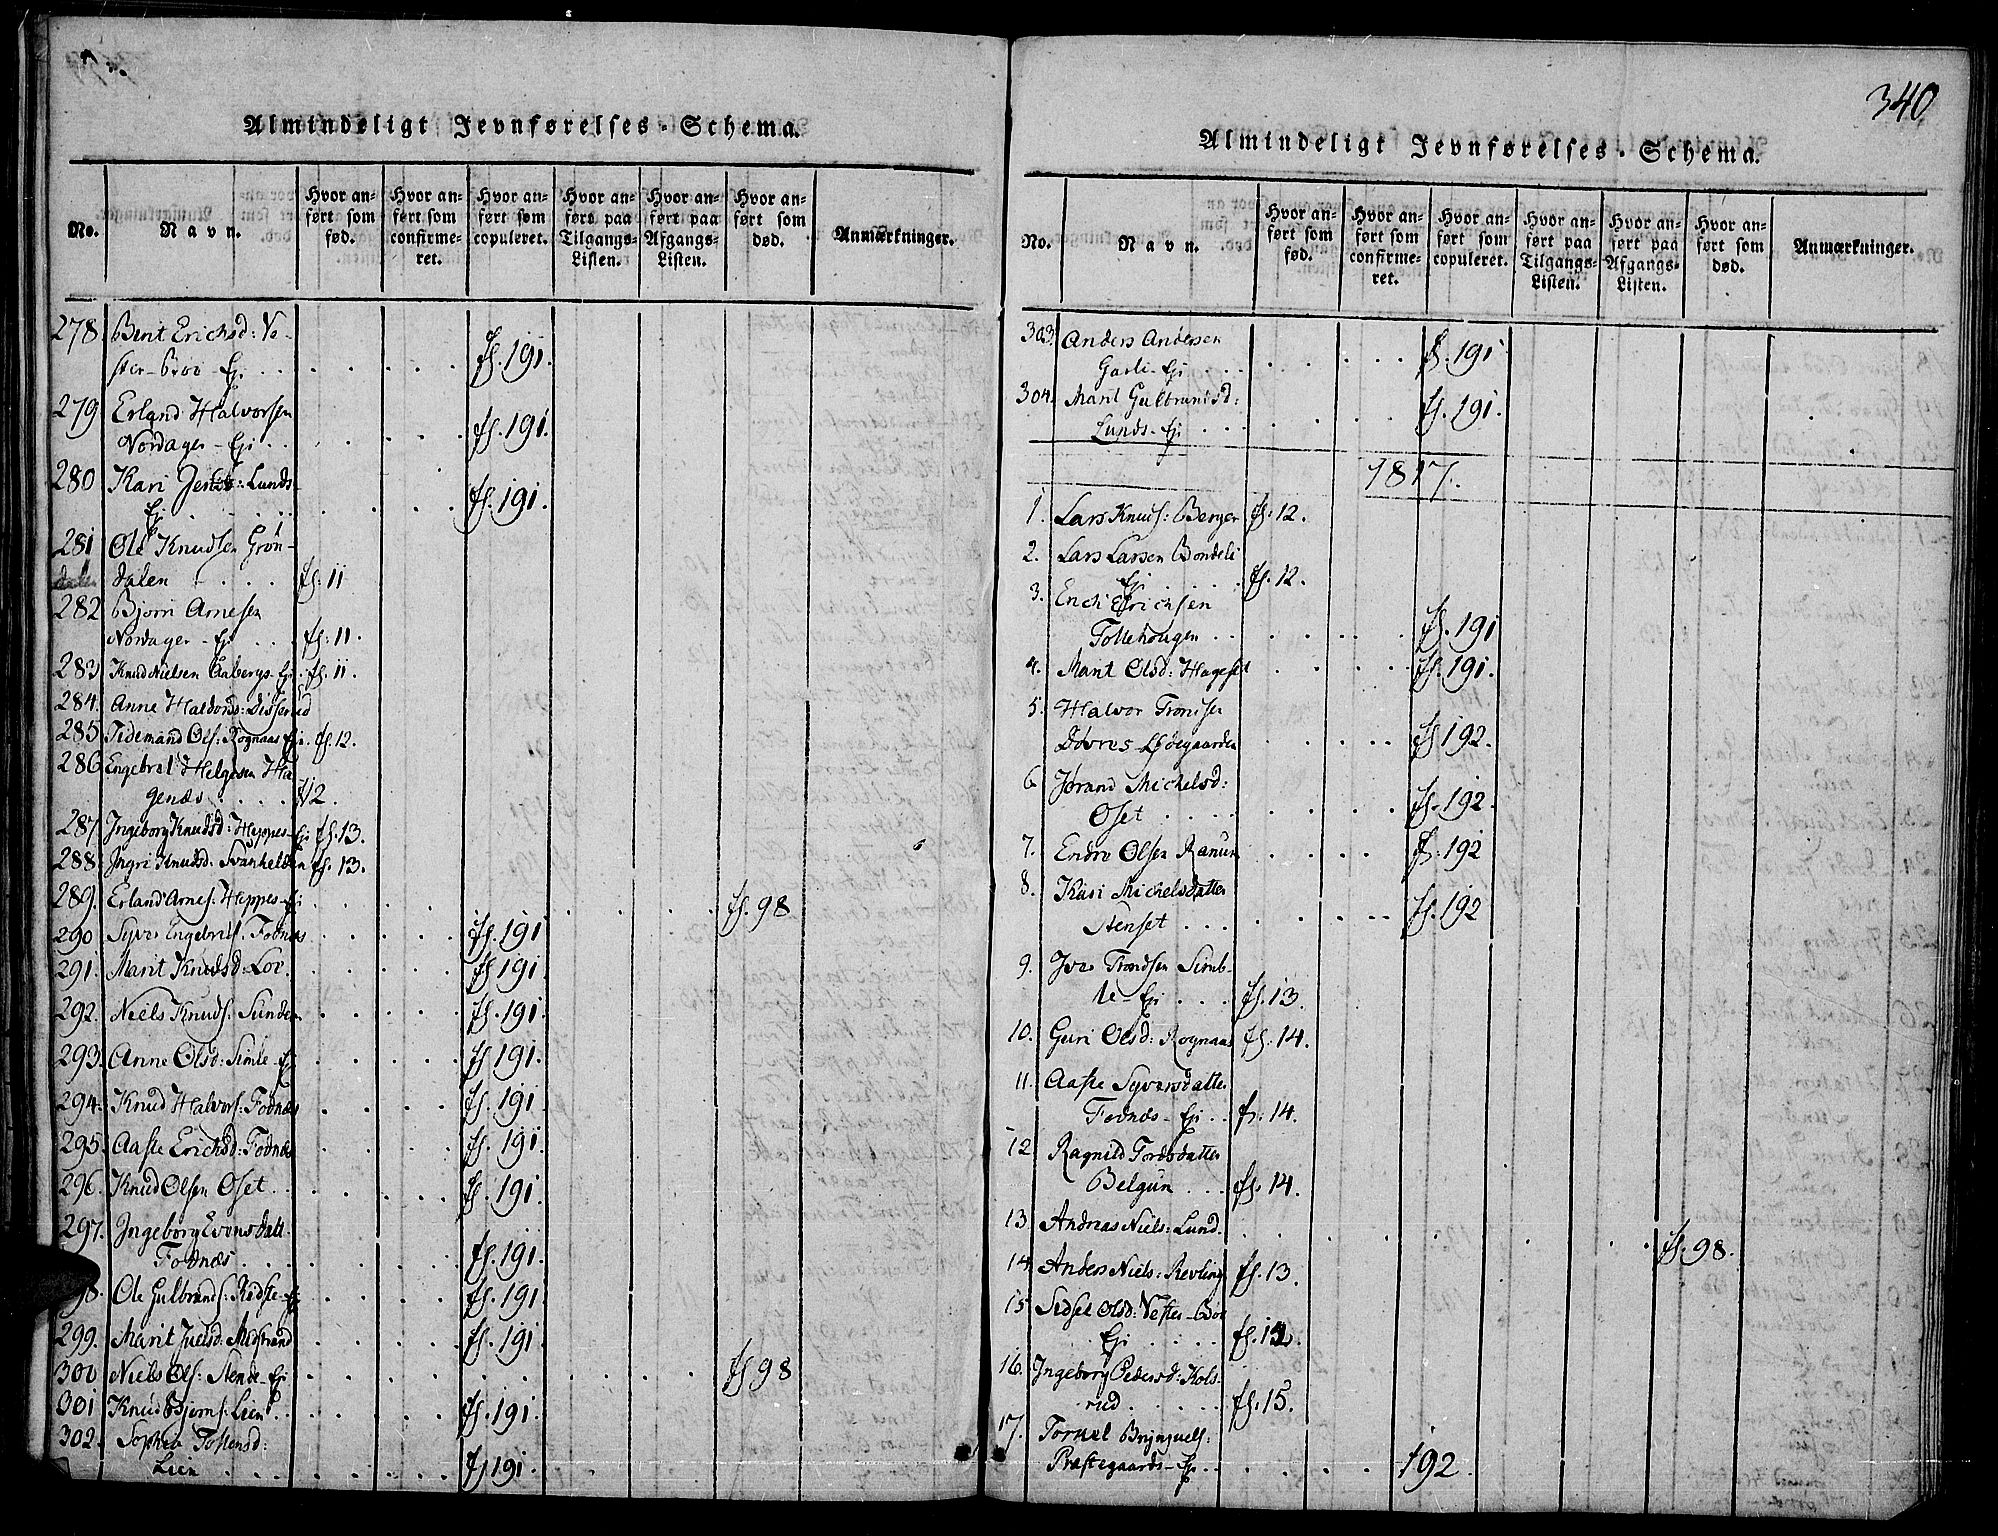 Almindeligt Jevnførelses-Schema.
No.
Navn.
Hvor anført som fød.
Hvor anført som confirmeret.
Hvor anført som copuleret.
Hvor anført paa Tilgangs-Listen.
Hvor anført paa Afgangs-Listen.
Hvor anført som død.
Anmærkninger.
278. Berit Erichsd: Ve-
ster-Broe-Ej . . fs. 191.
279 Erland Halvorsen
Nordager-Ej . . fs. 191.
280 Kari : Lunds-
Ej fs. 191.
281 Ole Knudsen Grøn-
dalen . . . . fs: 11
282 Bjørn Arnesen
Nordager-Ej . . . fs: 11.
283 Knud Nielsen Aabergs-Ej. fs. 11.
284. Anne Disserud
285 Tidemand Ols: Rognaas Ej. fs. 12.
286 Engebret Helgesen Ha-
genæs . . . . 12.
287 Ingeborg Knudsd: Heppes-Ej fs. 13.
288 Ingri Knudsd: fs. 13.
289. Erland Arnes: Heppes-Ej fs. 98
290 Syver Engebrits. Fodnæs fs. 191
291. Marit Knudsd: Loe. fs. 191
292. Niels Knuds: Sunde fs. 191.
293. Anne Olsd: Simle-Ej fs. 191
294. Knud Halvors: Fodnæs fs. 191
295. Aaste Erichsd: Fodnæs fs. 191
296. Knud Olsen Oset . . fs. 191.
297. Ingeborg Evensdatt.
Fodnæs . . . fs. 191.
98. Ole Gulbrands: fs. 191
299. Marit Juelsd: Midstrand fs. 191
300 Niels Ols: Stende-Ej fs 98
301 Knud Bjørns: Lien . . fs. 191.
302. Sophia Tostensd:
Lien . . . fs 191.
340
Almindeligt Jevnførelses-Schema.
No.
Navn.
Hvor anført som fød.
Hvor anført som confirmeret.
Hvor anført som copuleret.
Hvor anført paa Tilgangs-Listen.
Hvor anført paa Afgangs-Listen.
Hvor anført som død.
Anmærkninger.
303. Anders Andersen
Garli-Ej . . . fs. 191
304. Marit Gulbrandsd:
Lunds-Ej . . . fs. 191.
1817.
1. Lars Knuds: Berger fs: 12.
2. Lars Larsen Bondeli
Ej . . . . fs. 12.
3. Erich Erichsen
Tollehougen . . fs. 191
4. Marit Olsd: Hageset fs. 191.
5. Halvor Trondsen
Døvres-Ødegaarden fs 192.
6 Jørand Michelsd:
Oset . . . . fs. 192.
7. Endre Olsen Ranum fs. 192
8. Kari Michelsdatter
Stenset . . . fs. 192
9. Iver Trondsen Simb-
le-Ej . . . fs. 13.
10. Guri Olsd: Rognaas fs. 14.
11. Aaste Syversdatter
Fodnæs-Ej . . fs: 14.
12 Ragnild Tordsdatter
Belgum . . . fs. 14.
13. Andreas Niels: Lund. fs. 98.
14. Anders Niels: Revling fs. 13.
15 Sidsel Olsd: Vester-Broe
Ej . . .
16. Ingeborg Pedersd: Kols-
rud . . . . . fs. 15.
17. Brynguels:
Præstegaards-Ej . . 192.